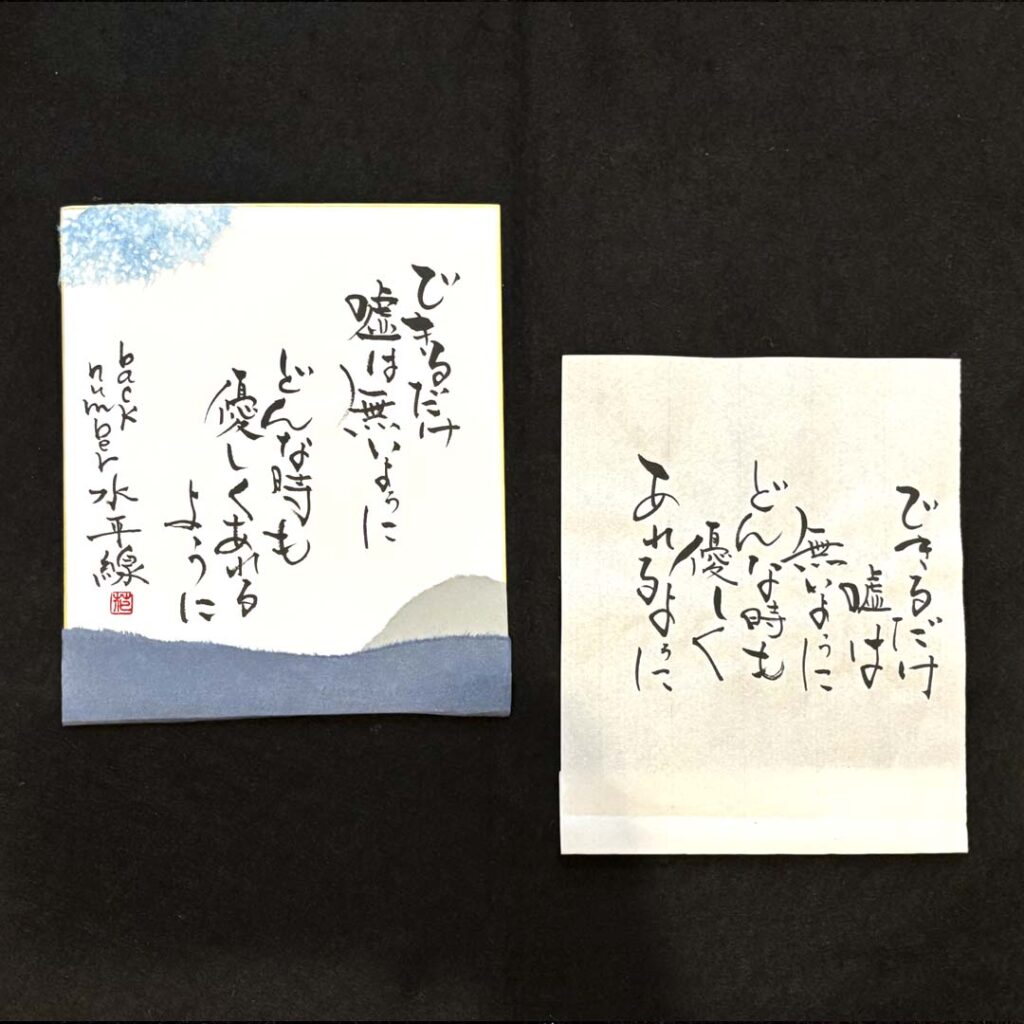 できるだけ
嘘は無いように
どんな時も
優しくあれる
ように
back
number 水平線
できるだけ
嘘は
無いように
どんな時も
優しく
あれるように